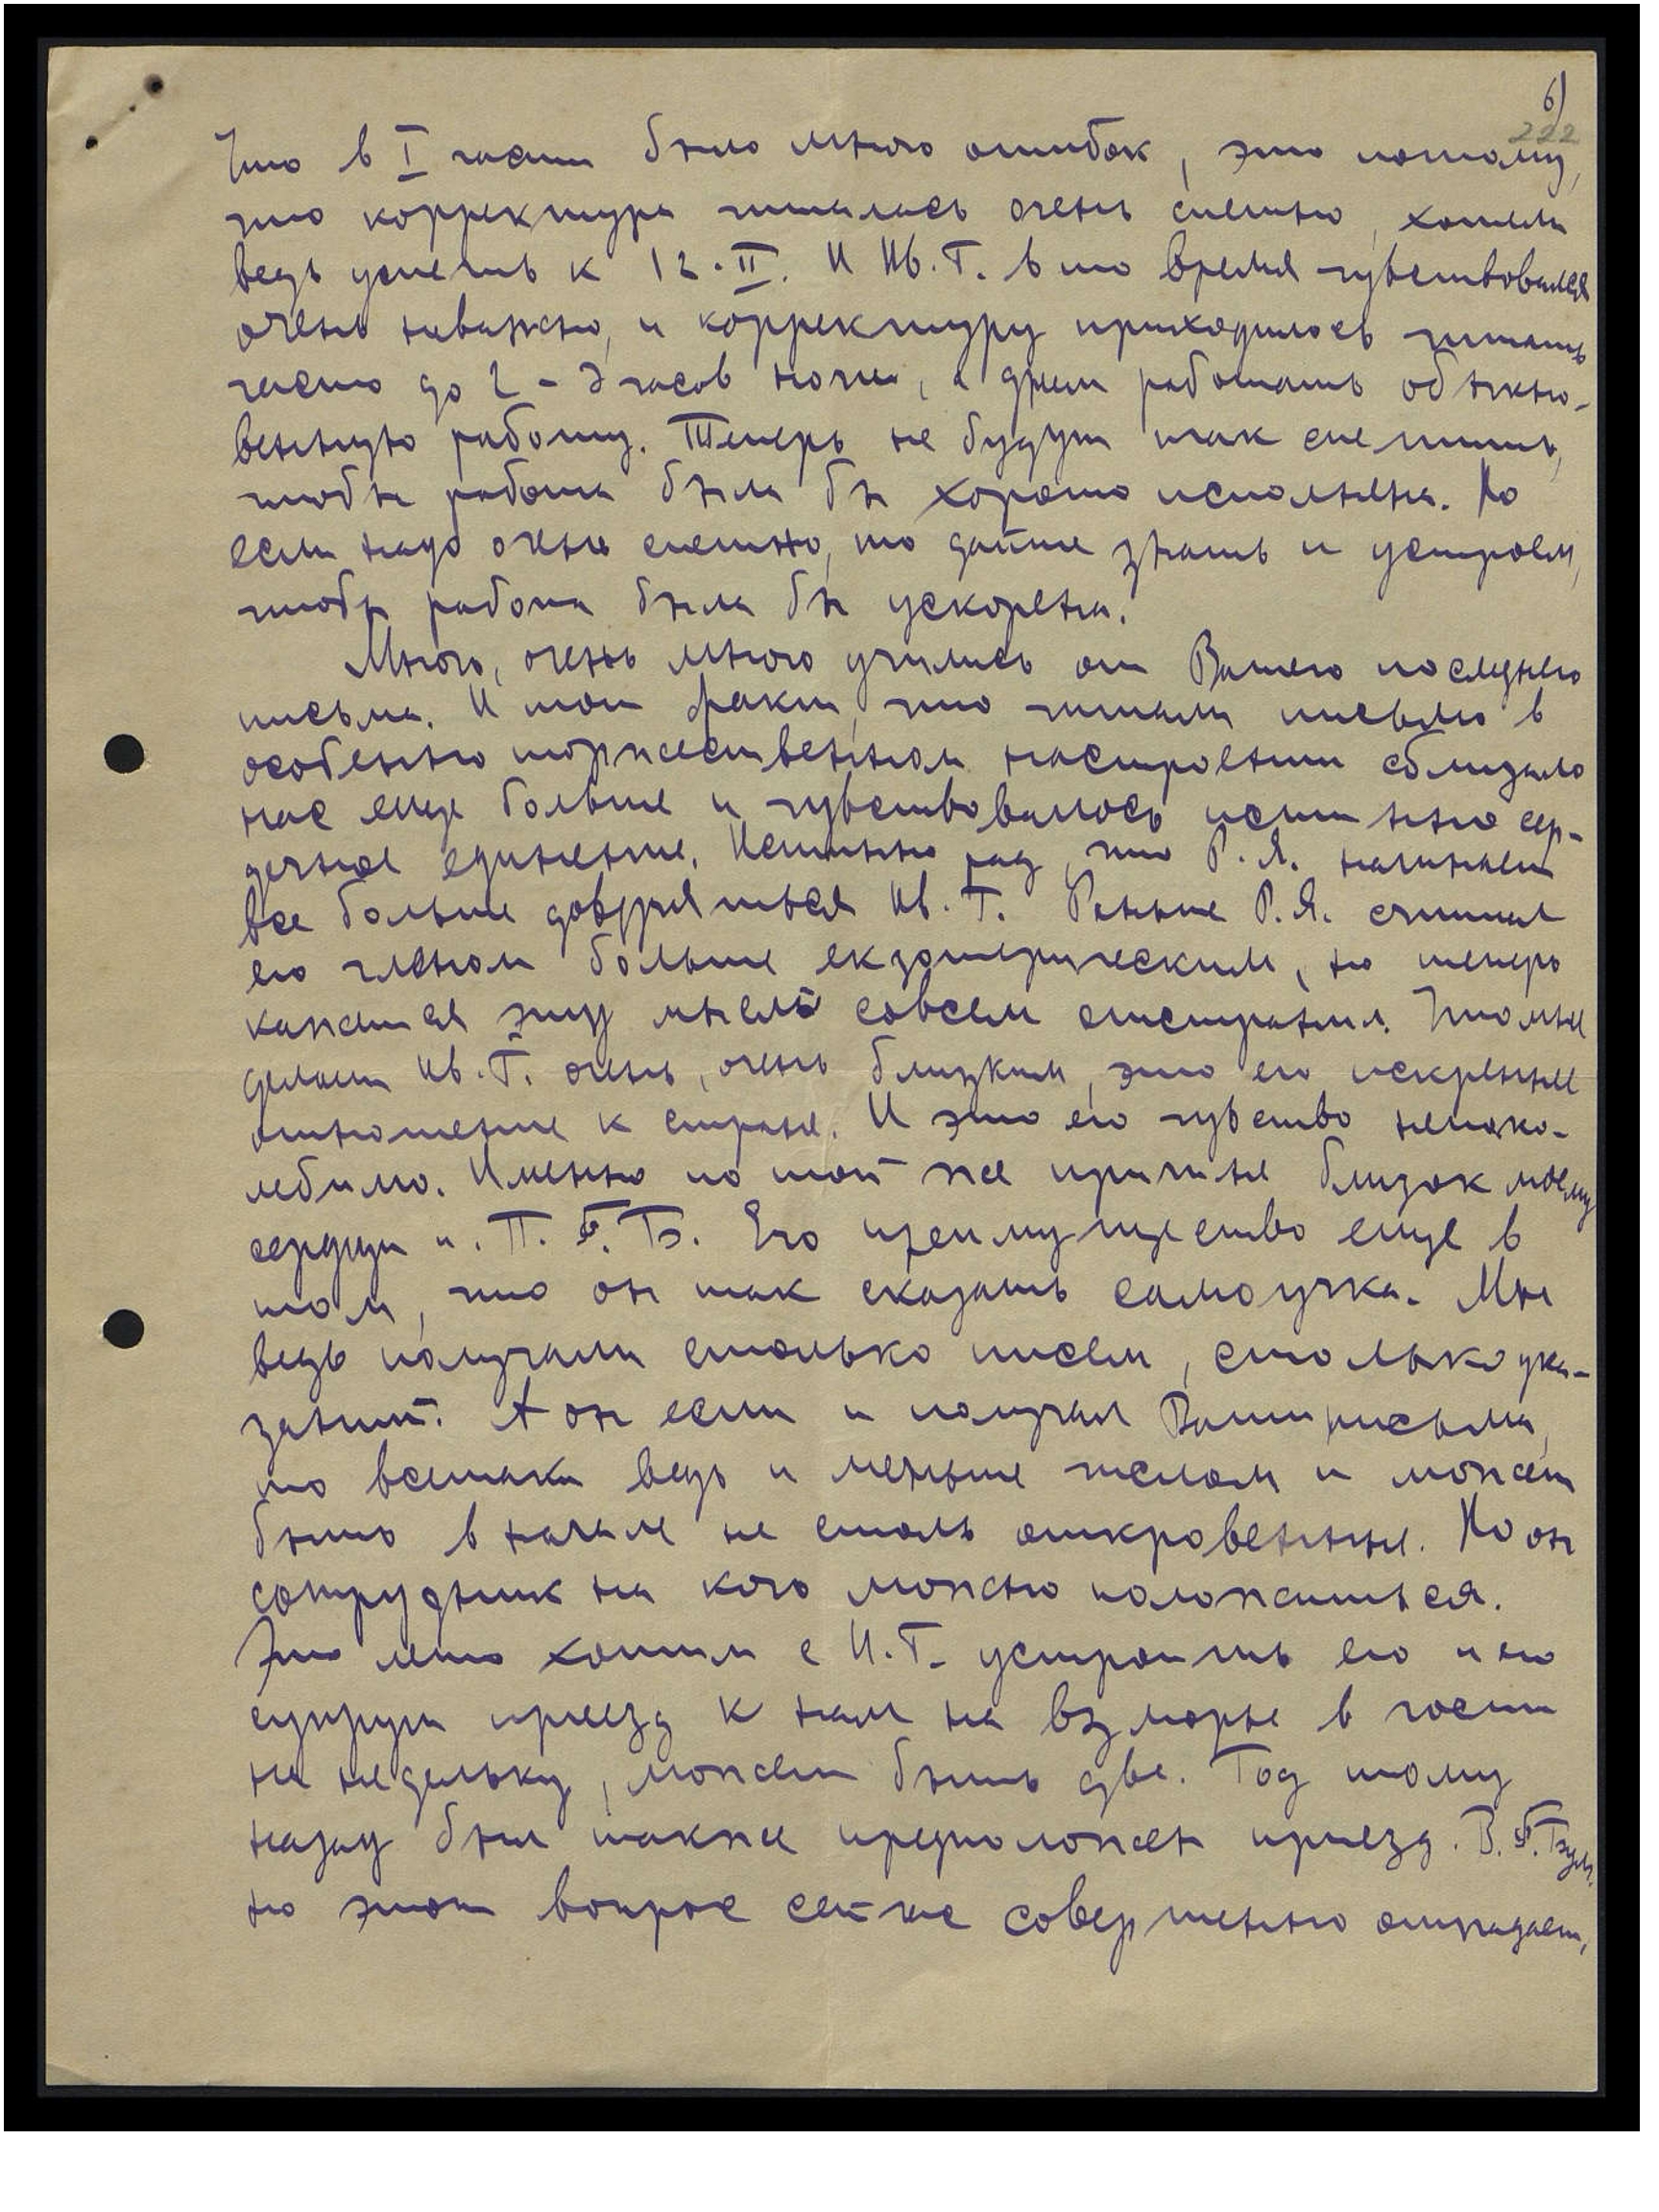 6)
222
Что в I части было много ошибок, это потому,
что корректура читалась очень спешно, хотели
ведь успеть к 12.II. И Ив.Г. в то время чувствовался
очень неважно, и корректуру приходилось читать
часто до 2 - 3 часов ночи, а днем работать обыкно-
венную работу. Теперь не будут так спешить,
чтобы работа была бы хорошо исполнена. Но
если надо очень спешно, то дайте знать и устроем,
чтобы работа была бы ускорена.
Много, очень много учились от Вашего последнего
письма. И тот факт, что читали письмо в
особенно торжественном настроении сблизило
нас еще больше и чувствовалось истинно сер-
дечное единение. Истинно рад, что Р.Я. начинает
все больше доверяться Ив. Г. Раньше Р.Я. считал
его членом больше екзотерическим, но теперь
кажется эту мысль совсем отстранил. Что мне
делает Ив.Г. очень, очень близким, это его искреннее
отношение к стране. И это его чувство непоко-
лебимо. Именно по той же причине близок моему
сердцу и. П.Ф.Б. Его преимущество еще в
том, что он так сказать самоучка. Мы
ведь получали столько писем, столько ука-
заний. А он если и получал Ваши письма,
то всетаки ведь и меньше числом и может
быть в начале не столь откровенные. Но он
сотрудник на кого можно положиться.
Это лето хотим с И.Г. устроить его и его
супруги приезд к нам на взморье в гости
на недельку, может быть две. Год тому
назад был также предположен приезд. В.Ф.Бул.
но этот вопрос сейчас совершенно отпадает,